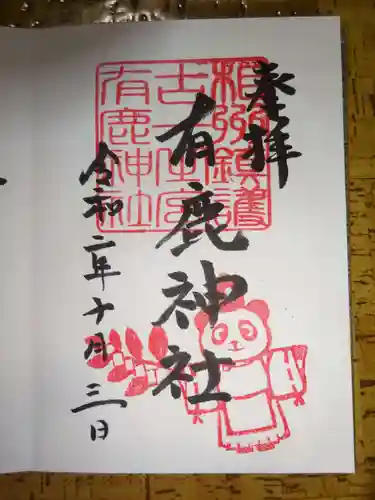 奉拝
有鹿神社
令和二年十月三日
相模鎮護
有鹿神社